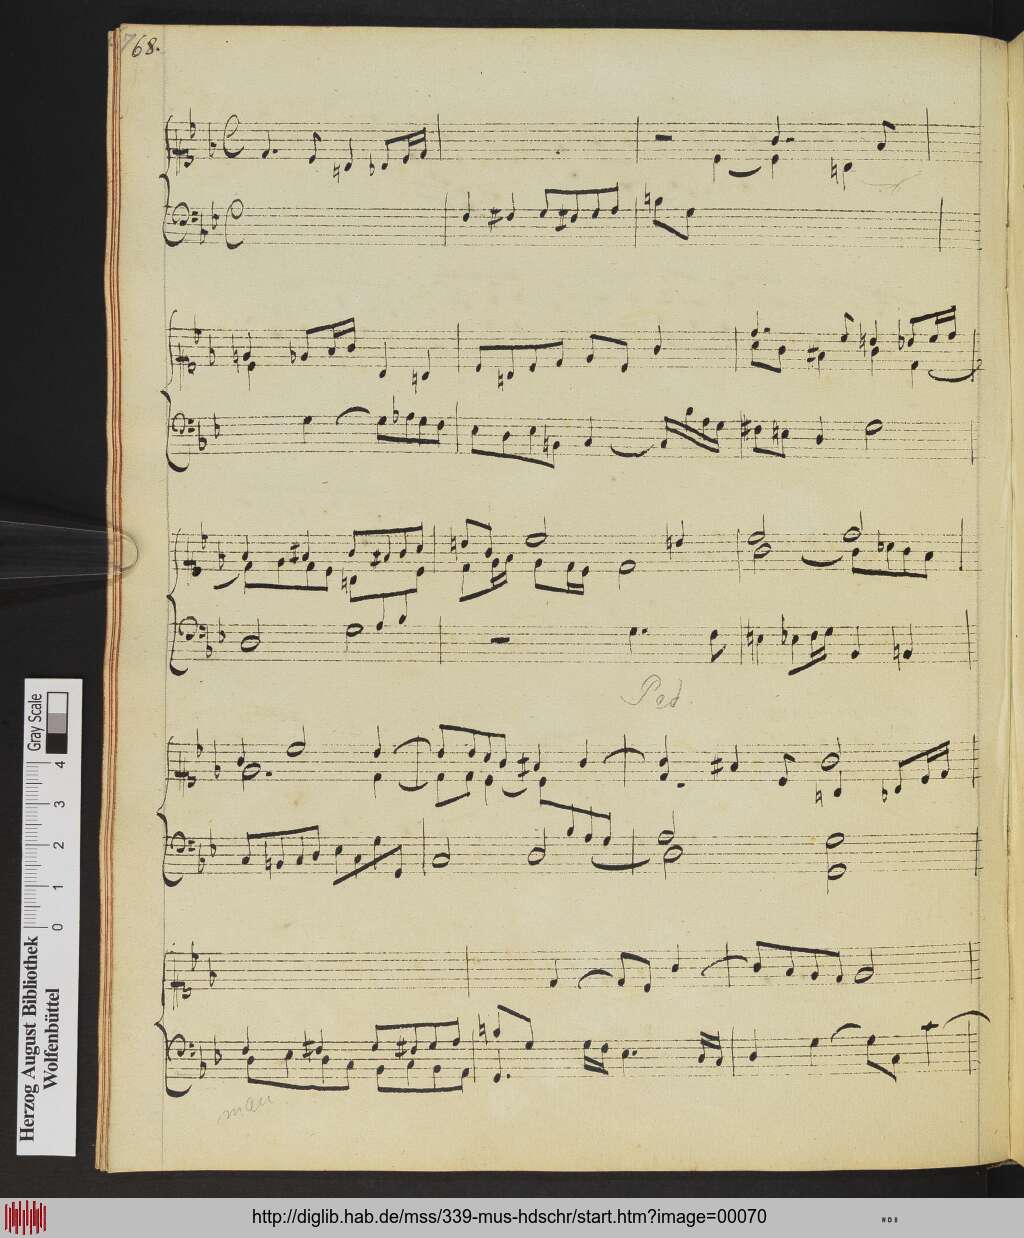 68.
Ped.
man.
Gray Scale
4
3
2
1
0
Herzog August Bibliothek
Wolfenbüttel
http://diglib.hab.de/mss/339-mus-hdschr/start.htm?image=00070